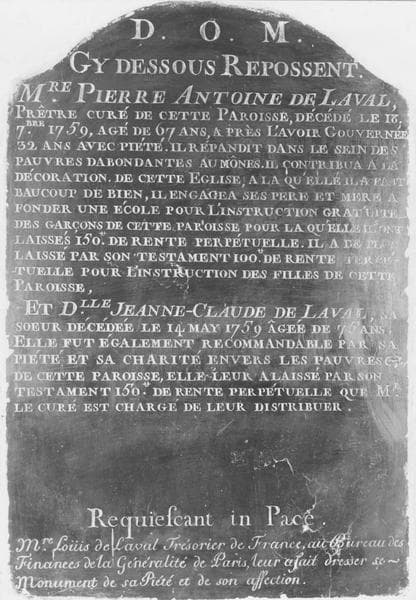 D. O. M.
GY DESSOUS REPOSSENT.
M.RE PIERRE ANTOINE DE LAVAL,
PRÊTRE CURÉ DE CETTE PAROISSE, DÉCÉDÉ LE 18,
7.BRE 1759, AGÉ DE 67 ANS, A PRÈS L'AVOIR GOUVERNÉE
32 ANS AVEC PIETÉ. IL RÉPANDIT DANS LE SEIN DES
PAUVRES DABONDANTES AUMÔNES. IL CONTRIBUA A LA
DÉCORATION. DE CETTE EGLISE, A LA QU'ELLE IL A FAIT
BAUCOUP DE BIEN, IL ENGAGEA SES PERE ET MERE A
FONDER UNE ÉCOLE POUR L'INSTRUCTION GRATUITE
DES GARÇONS DE CETTE PAROISSE POUR LA QU'ELLE ILS ONT
LAISSÉS 150.tt DE RENTE PERPÉTUELLE. IL A DE PLUS
LAISSÉ PAR SON TESTAMENT 100.tt DE RENTE PERPÉ-
TUELLE POUR L'INSTRUCTION DES FILLES DE CETTE
PAROISSE,
ET D.LLE JEANNE-CLAUDE DE LAVAL, SA
SOEUR DÉCÉDÉE LE 14 MAY 1759 ÂGÉE DE 75 ANS.
ELLE FUT EGALEMENT RECOMMANDABLE PAR SA
PIÉTÉ ET SA CHARITÉ ENVERS LES PAUVRES
DE CETTE PAROISSE, ELLE LEUR A LAISSÉ PAR SON
TESTAMENT 150.tt DE RENTE PERPÉTUELLE QUE M.R
LE CURÉ EST CHARGÉ DE LEUR DISTRIBUER.
Requiescant in Pace.
M.re Loüis de Laval Trésorier de France, au Bureau des
Finances de la Généralité de Paris, leur a fait dresser ce
Monument de sa Piété et de son affection.